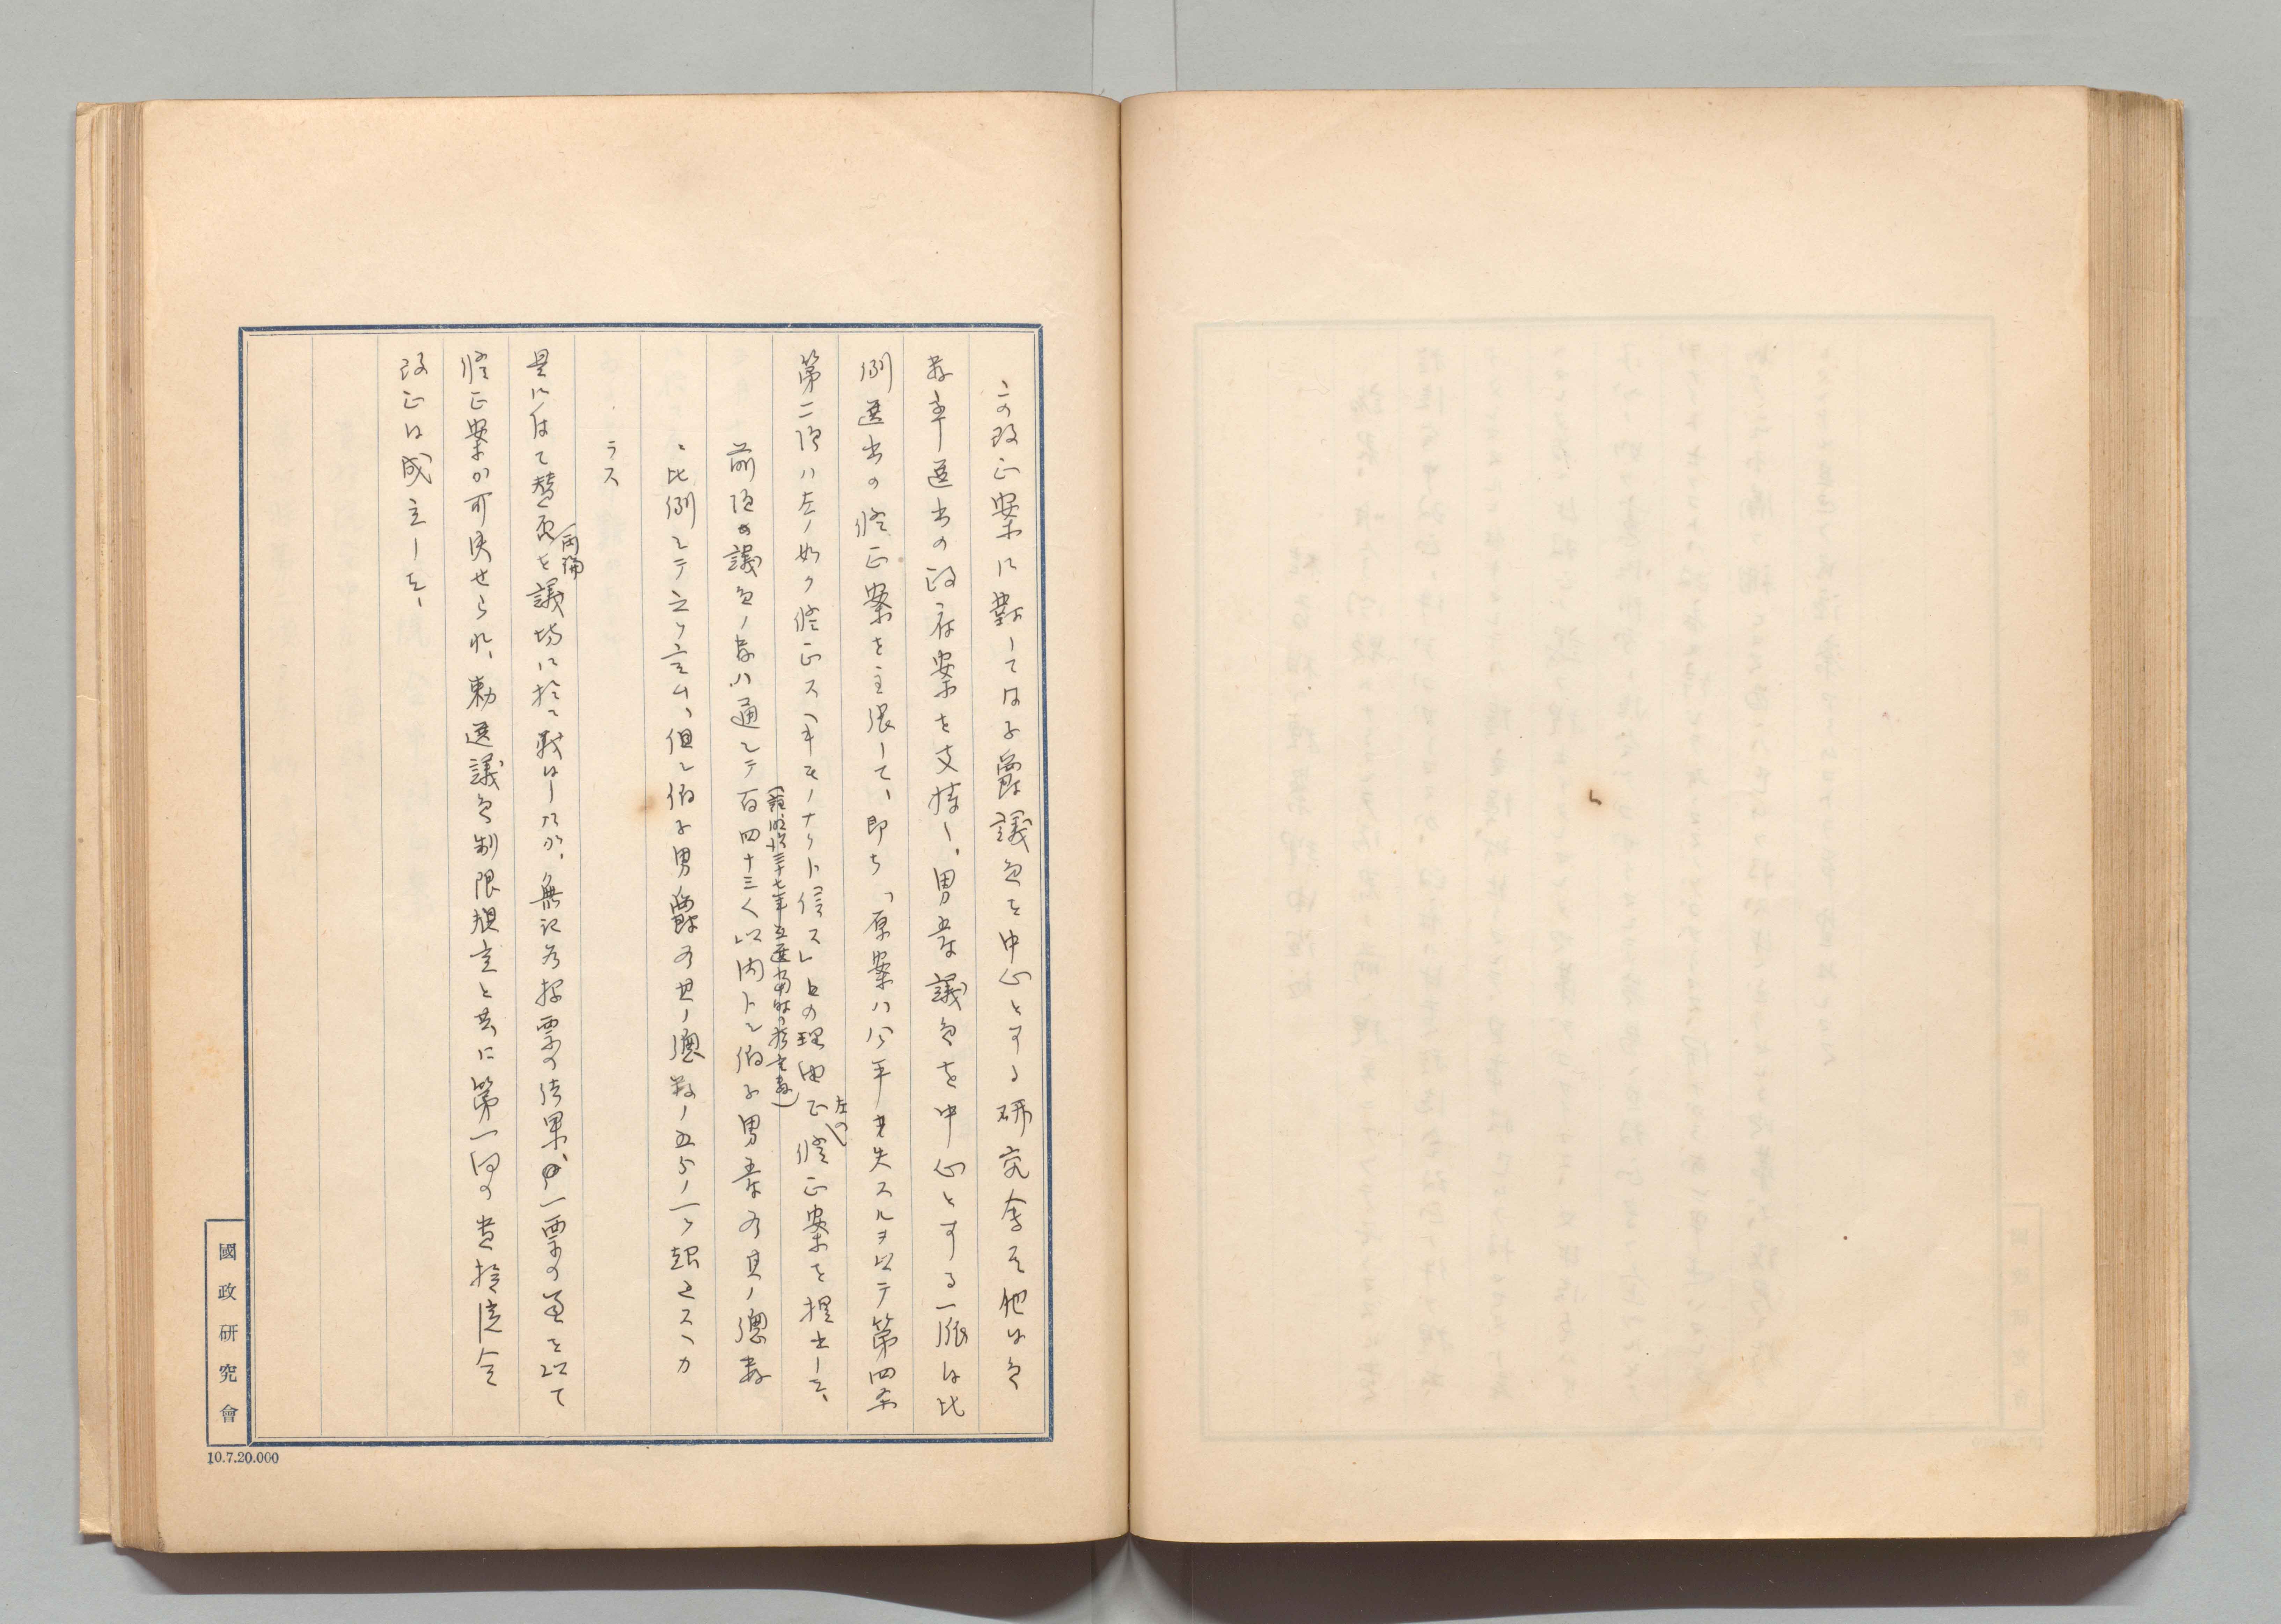 この改正案に對しては子爵議員を中心とする研究會其他は員
数率選出の政府案を支持し、男爵議員を中心とする一派は比
例選出の修正案を主張して、即ち「原案ハ公平ヲ失スルヲ以テ第四条
第二項ハ左ノ如ク修正スヘキモノナリト信ス」との理由で左の修正案を提出した、
前項の議員ノ数ハ通シテ百四十三人以内トシ伯子男爵各其ノ總数
(註 明治三十七年互選当時の 数)
ニ比例シテ之ヲ定ム、但シ伯子男爵各其ノ總数ノ五分ノ一ヲ超ユヘカ
ラス
是に於て賛否両論を議場に於て戦はしたが、無記名投票の結果、一票の差を以て
修正案が可決せられ、勅選議員制限規定と共に第一回の貴族院令
改正は成立した、
國政研究會
10.7.20.000